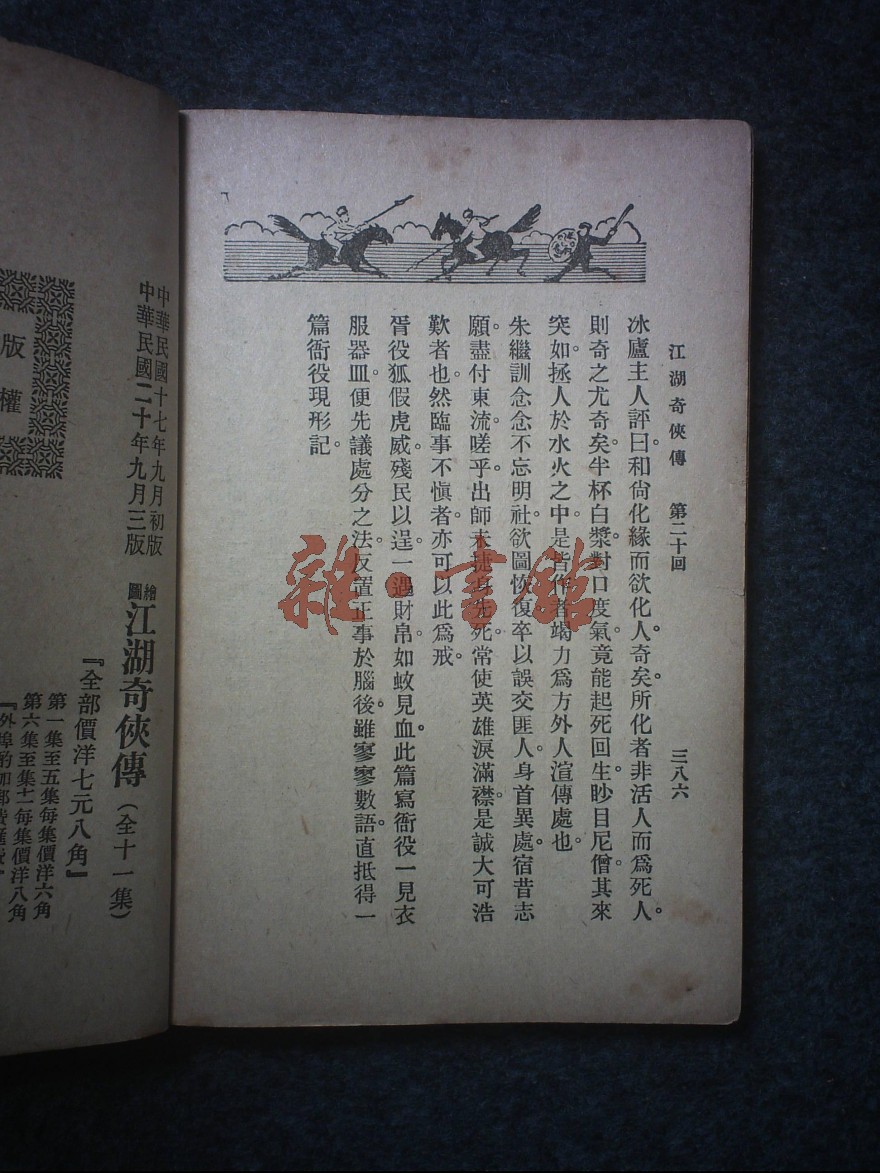 江湖奇俠傳　第二十回　三八六
冰廬主人評曰和尙化緣而欲化人奇矣所化者非活人而爲死人。
則奇之尤奇矣。半杯白漿。對口度氣。竟能起死回生。眇目尼僧。其來
突如拯人於水火之中。是皆作者竭力爲方外人渲傳處也。
朱繼訓念念不忘明社。欲圖恢復。卒以誤交匪人。身首異處。宿昔志
願。盡付東流。嗟乎。出師未捷身先死。常使英雄淚滿襟。是誠大可浩
歎者也。然臨事不愼者。亦可以此爲戒。
胥役狐假虎威。殘民以逞。一遇財帛。如蚊見血。此篇寫衙役一見衣
服器皿。便先議處分之法。反置正事於腦後。雖寥寥數語。直抵得一
篇衙役現形記。
雜·書館
版權
中華民國十七年九月初版
中華民國二十年九月三版
繪圖江湖奇俠傳（全十一集）
『全部價洋七元八角』
第一集至五集每集價洋六角
第六集至集十一每集價洋八角
『外埠酌加郵費